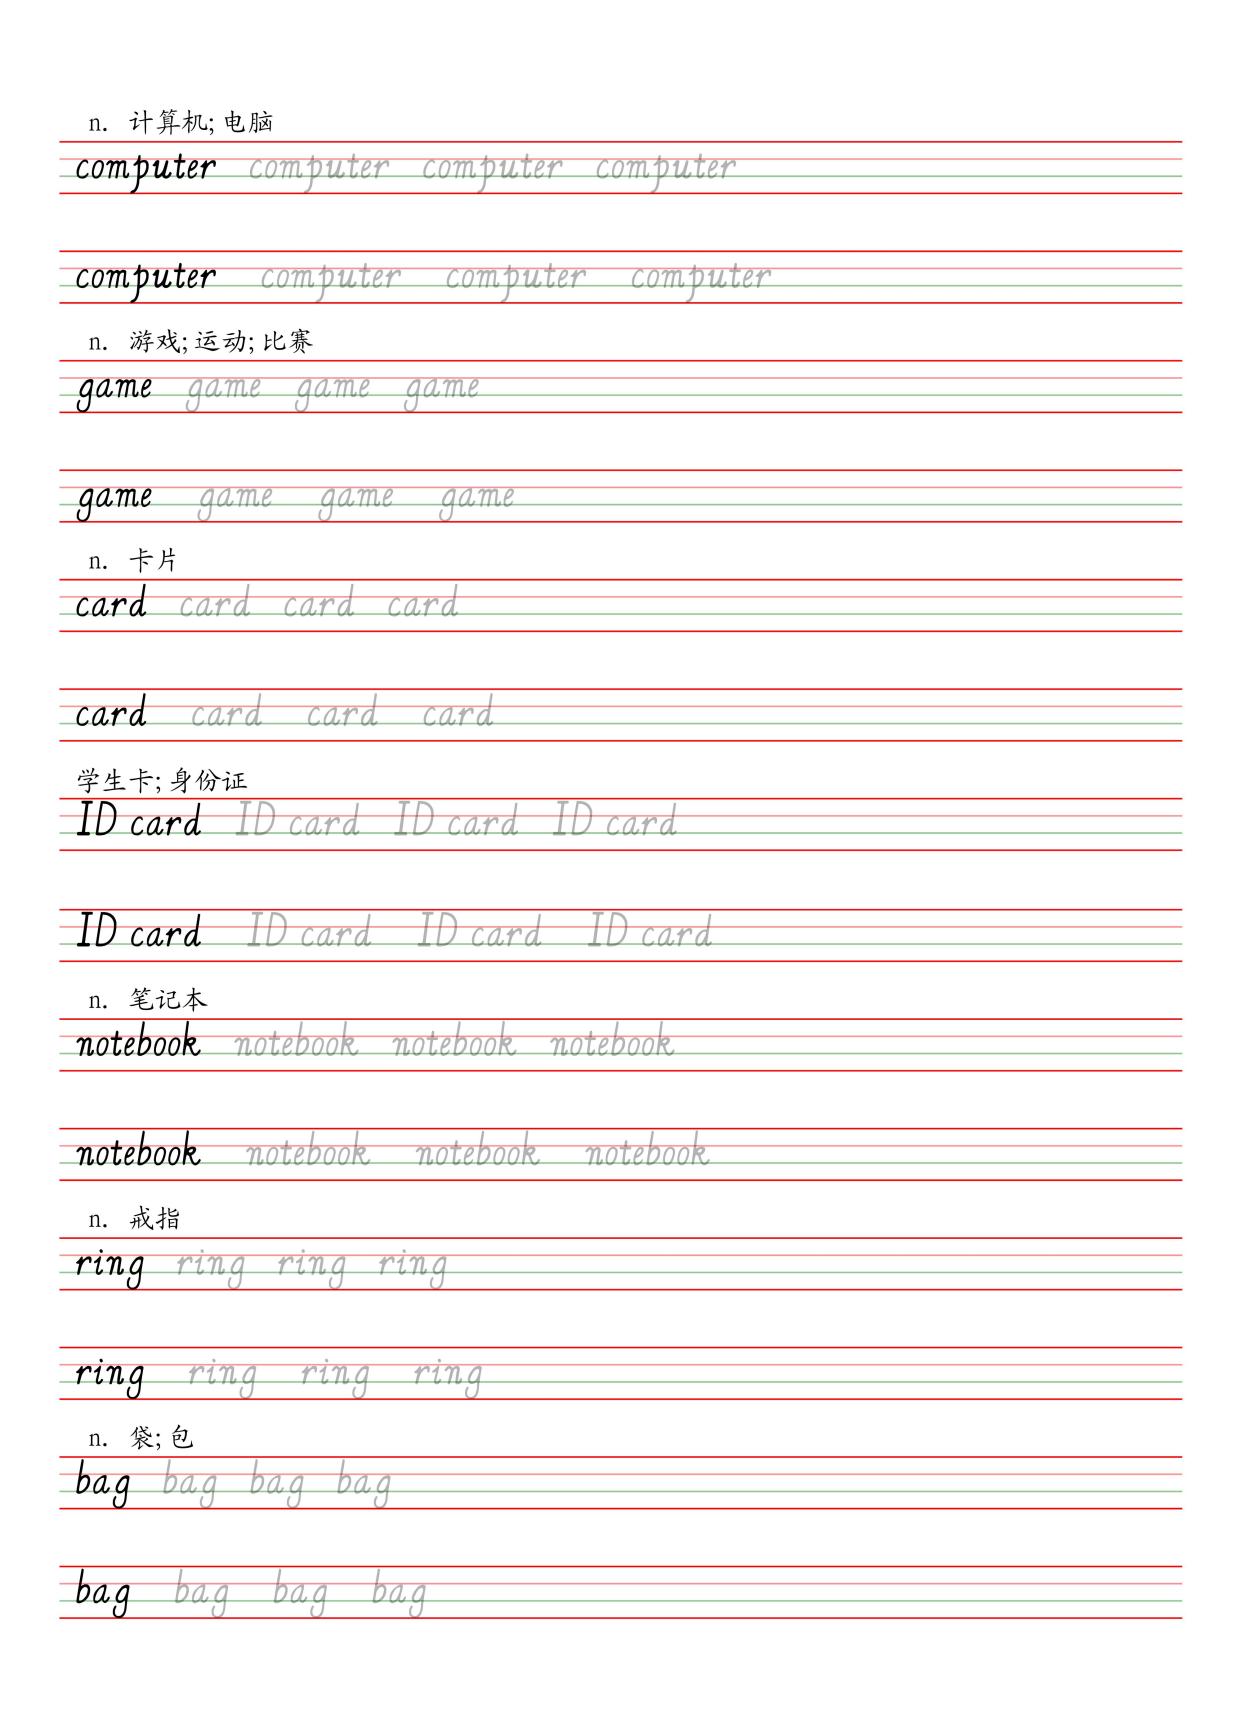 n. 计算机; 电脑
computer computer computer computer
computer computer computer computer
n. 游戏; 运动; 比赛
game game game game
game game game game
n. 卡片
card card card card
card card card card
学生卡; 身份证
ID card ID card ID card ID card
ID card ID card ID card ID card
n. 笔记本
notebook notebook notebook notebook
notebook notebook notebook notebook
n. 戒指
ring ring ring ring
ring ring ring ring
n. 袋; 包
bag bag bag bag
bag bag bag bag